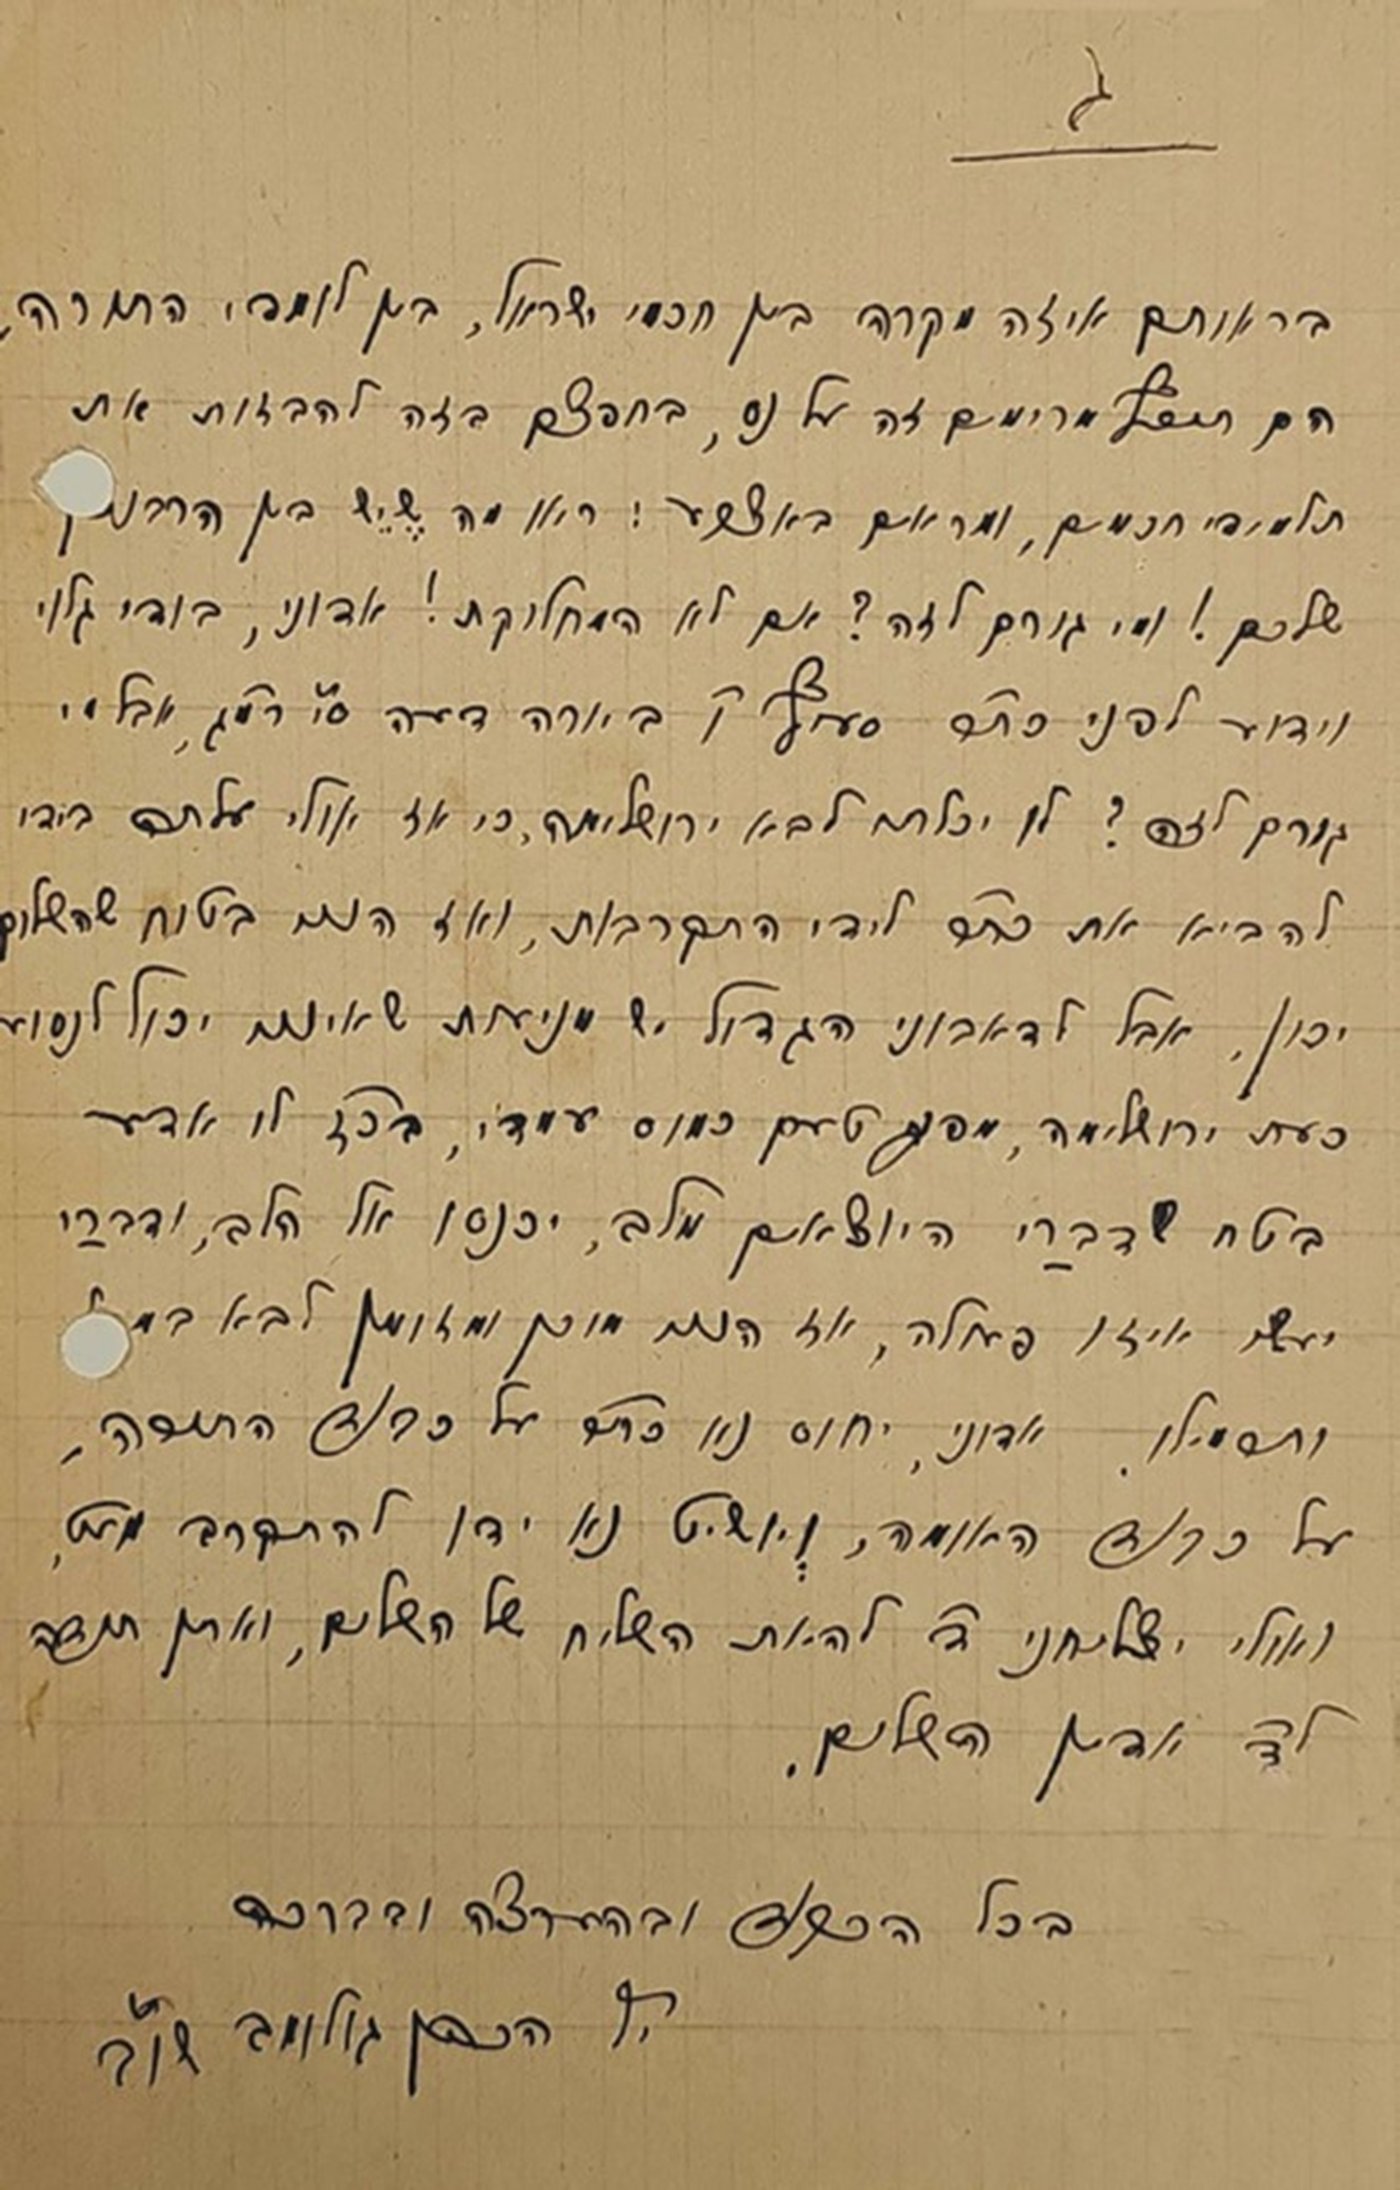 ג
בראותם איזה מקרה בין חכמי ישראל, בין לומדי התורה,
הם תיכף מרימים זה על נס, בחפצם בזה להבזות את
תלמידי חכמים, ומראים באצבע: ראו מה שֶׁיֵש בין הרבנים
שלכם! ומי גורם לזה? אם לא המחלוקת! אדוני, בודאי גלוי
וידוע לפני כת"ה סעיף ו' ביורה דעה סי' רמ"ג, אבל מי
גורם לזה? לו יכלתי לבא ירושלימה, כי אז אולי עלתה בידי
להביא את כת"ה לידי התקרבות, ואז הנני בטוח שהשלום
יכון, אבל לדאבוני הגדול יש מניעות שאינני יכול לנסוע
כעת ירושלימה, מפני טעם כמוס עמדי, בכ"ז לו אדע
בטח שדברַי היוצאים מלב, יכנסו אל הלב, ודברַי
יעשו איזו פעולה, אז הנני מוכן ומזומן לבא
ותשמילו. אדוני, יחוס נא כת"ה על כבוד התורה,
על כבוד האומה, וְיושיט נא ידו להתקרב מעט,
ואולי יצליחני ד' להיות השליח של השלום, ואתן תודה
לד' אדון השלום.
בכל הכבוד ובהערצה ובברכה
הכהן גולומב שו"ב